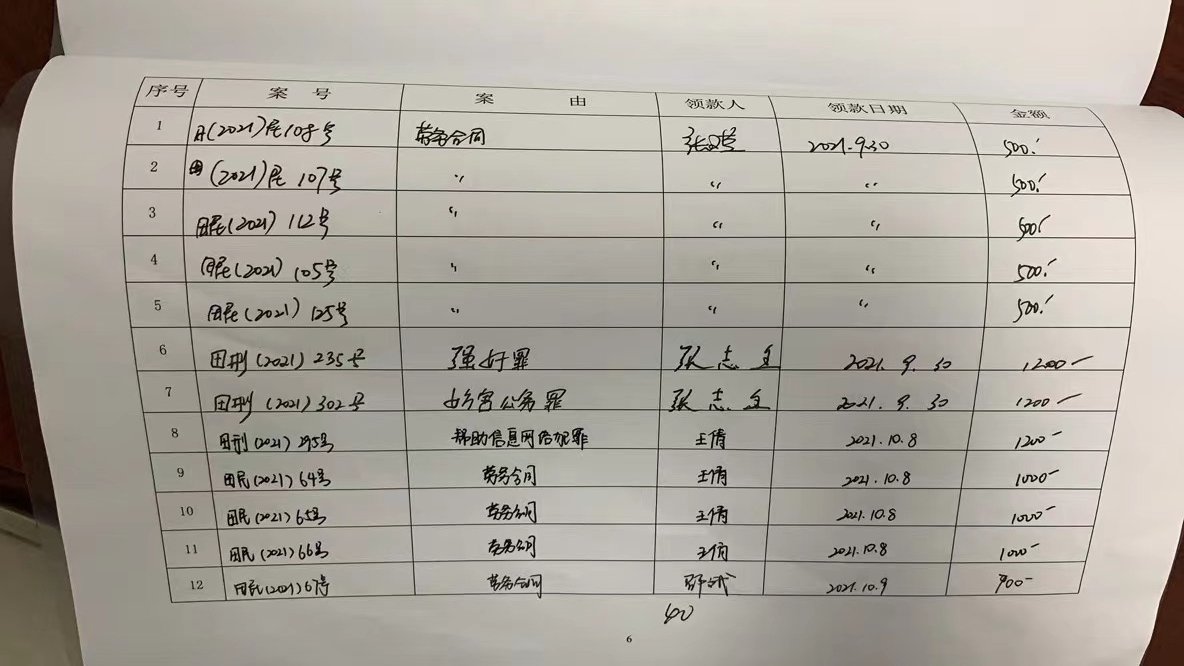 序号 案 号 案 由 领款人 领款日期 金额
1 田(2021)民108号 劳务合同 2021.9.30 500.-
2 田(2021)民 107号 〃 〃 〃 500.-
3 田民(2021) 112号 〃 〃 〃 500.-
4 田民(2021) 105号 〃 〃 〃 500.-
5 田民(2021) 125号 〃 〃 〃 500.-
6 田刑(2021) 235号 强奸罪 张志全 2021.9.30 1200-
7 田刑(2021) 302号 妨害公务罪 张志全 2021.9.30 1200-
8 田刑(2021) 295号 帮助信息网络犯罪 王倩 2021.10.8 1200-
9 田民(2021) 64号 劳务合同 王倩 2021.10.8 1000-
10 田民(2021) 65号 劳务合同 王倩 2021.10.8 1000-
11 田民(2021) 66号 劳务合同 王倩 2021.10.8 1000-
12 田民(2021) 67号 劳务合同 2021.10.9 900-
40
6